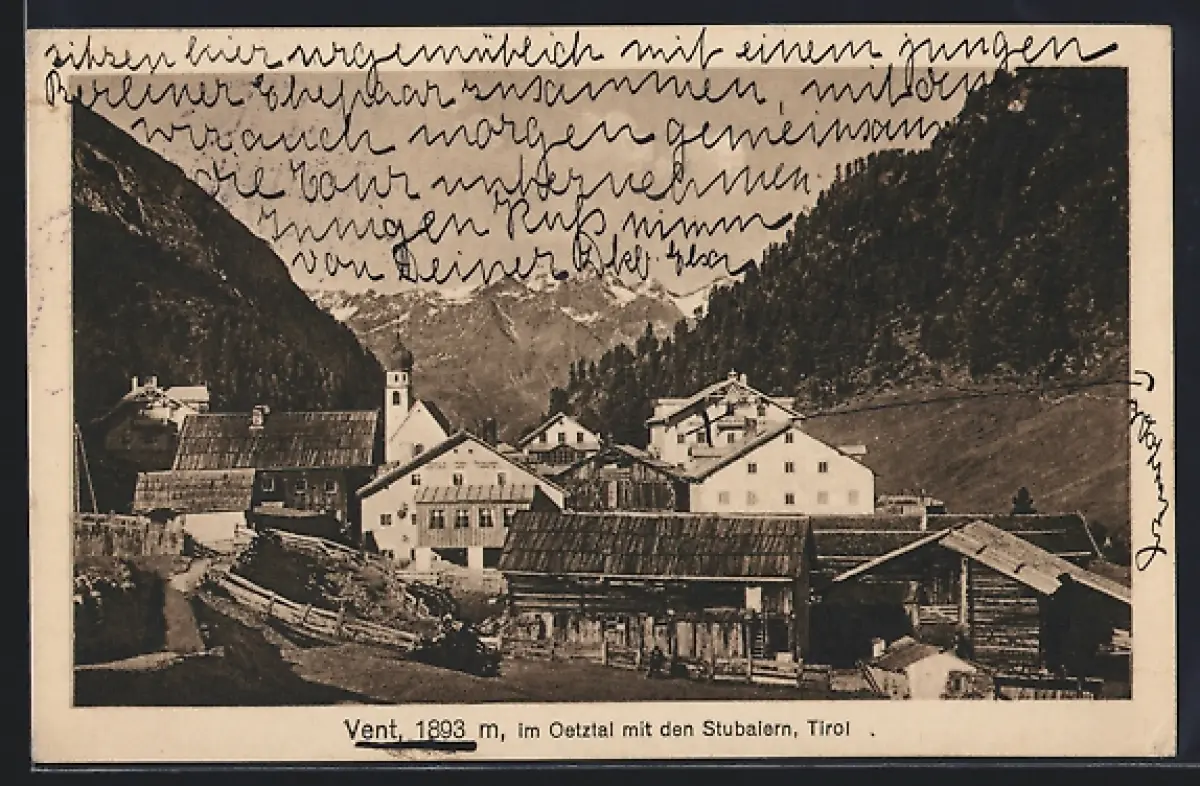 sitzen hier urgemütlich mit einem jungen
Berliner Ehepaar zusammen, mit dem
wir auch morgen gemeinsam
die Tour unternehmen
Innigen Kuß nimm
von Deiner Dkb. Elsa
Vent, 1893 m, im Oetztal mit den Stubaiern, Tirol